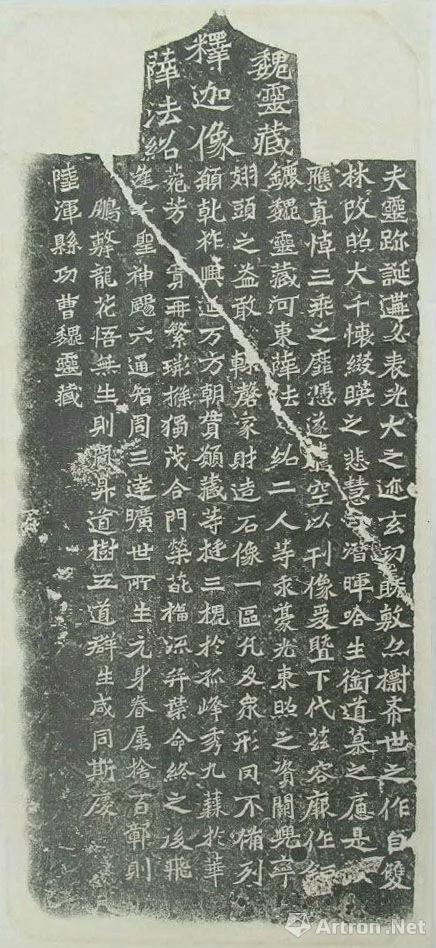 魏靈藏
釋迦像
薛法紹
夫靈跡誕遘必表光大之迹玄功既敷亦摽希世之作自雙
林改照大千懷綴暎之悲慧潛暉哈生銜道慕之應是
應真悼三乘之靡憑遂空以刊像爰暨下代茲容廓作
鏕魏靈藏河東薛法紹二人等求豪光東照之資闕兜率
翅頭之益敢輒罄家財造石像一區凡及眾形罔不備列
願乹祚興延万方朝貫願藏等挺三槐於孤峰秀九蕀於華
菀芳實再繁荊條獨茂合門榮葩福流弈葉命終之後飛
逢聖神颺六通智周三達曠世所生元身眷屬捨百鄣則
鵬擊龍花悟無生則鳳昇道樹五道群生咸同斯慶
陸渾縣功曹魏靈藏
Artron.Net